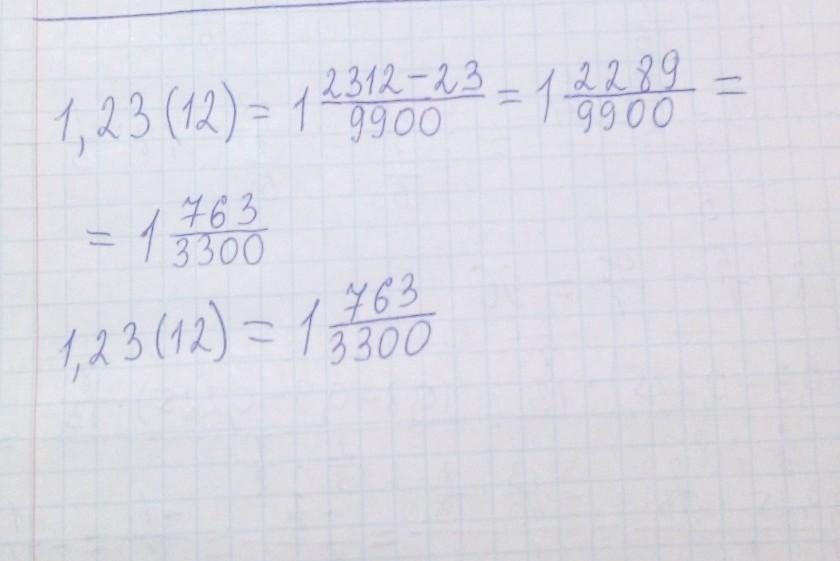 1,23(12) = 1 2312-23/9900 = 1 2289/9900 =
= 1 763/3300
1,23(12) = 1 763/3300